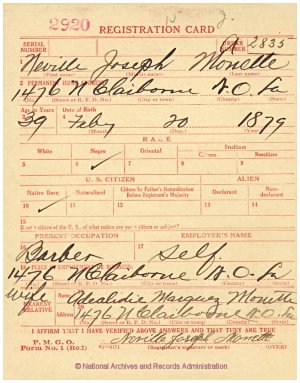 2920
REGISTRATION CARD
SERIAL NUMBER
ORDER NUMBER 2835
Neville Joseph Monette
(First name) (Middle name) (Last name)
2 PERMANENT HOME ADDRESS:
1476 N Claiborne N.O. La
(No.) (Street or R. F. D. No.) (City or town) (County) (State)
Age in Years
Date of Birth
39 Feby 20 1879
(Month.) (Day.) (Year.)
RACE
White Negro Oriental Indian
Citizen Noncitizen
5 6 7 8 9
✓
U. S. CITIZEN ALIEN
Native Born Naturalized Citizen by Father's Naturalization Before Registrant's Majority Declarant Non-declarant
10 11 12 13 14
✓
15
If not a citizen of the U. S., of what nation are you a citizen or subject?
PRESENT OCCUPATION EMPLOYER'S NAME
16 17
Barber Self
18 PLACE OF EMPLOYMENT OR BUSINESS:
1476 N Claiborne N.O. La
(No.) (Street or R. F. D. No.) (City or town) (County) (State)
Wife
NEAREST RELATIVE
Name
Adealidie Marquez Monette
Address
1476 N Claiborne N.O. La
I AFFIRM THAT I HAVE VERIFIED ABOVE ANSWERS AND THAT THEY ARE TRUE
P. M. G. O.
Form No. 1 (Red)
Neville Joseph Monette
(Registrant's signature or mark) (OVER)
© National Archives and Records Administration